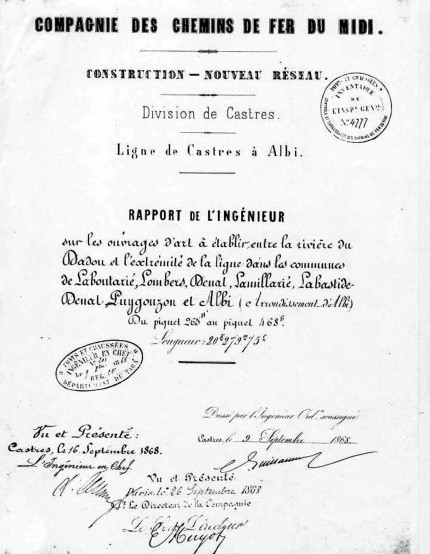 COMPAGNIE DES CHEMINS DE FER DU MIDI.
CONSTRUCTION — NOUVEAU RÉSEAU.
Division de Castres.
Ligne de Castres à Albi.
PONTS ET CHAUSSÉES
INVENTAIRE
DE
L'INSP.r GEN.al
N.o 4777
RAPPORT DE L'INGÉNIEUR
sur les ouvrages d'art à établir entre la rivière du
Dadou et l'extrémité de la ligne dans les communes
de Laboutarié, Lombers, Denat, Lamillarié, Labastide-
Denat Puygouzon et Albi (Arrondissement d'Albi)
Du piquet 265 au piquet 468
Longueur: 20k 279m 75c
PONTS ET CHAUSSÉES
INGÉNIEUR EN CHEF
DÉPARTEMENT DU TARN
Dressé par l'Ingénieur Ord.re soussigné
Castres, le 2 Septembre 1868.
Vu et Présenté:
Castres, le 16 Septembre 1868.
L'Ingénieur en Chef
Vu et Présenté
Paris le 26 Septembre 1868
Le Directeur de la Compagnie
Directeur